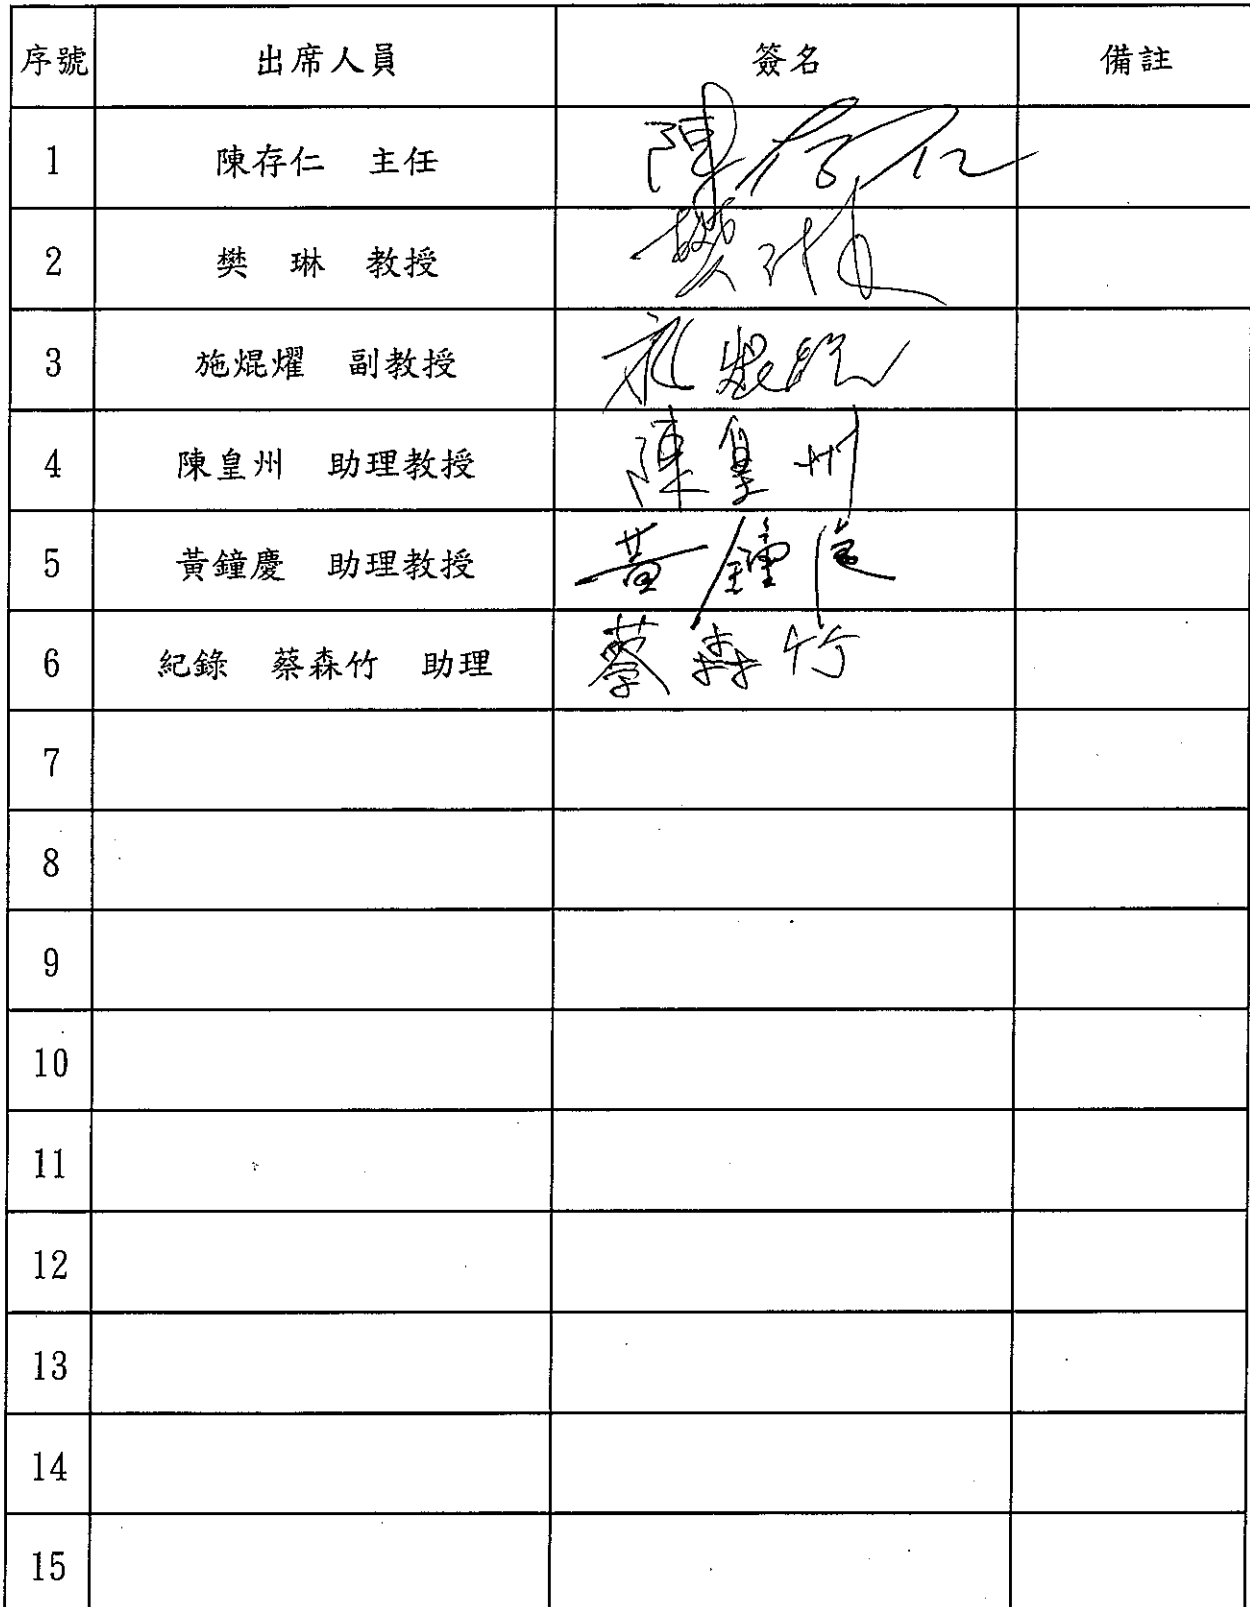 序號 出席人員 簽名 備註
1 陳存仁 主任 陳存仁
2 樊 琳 教授 樊琳
3 施焜燿 副教授 施焜燿
4 陳皇州 助理教授 陳皇州
5 黃鐘慶 助理教授 黃鐘慶
6 紀錄 蔡森竹 助理 蔡森竹
7
8
9
10
11
12
13
14
15